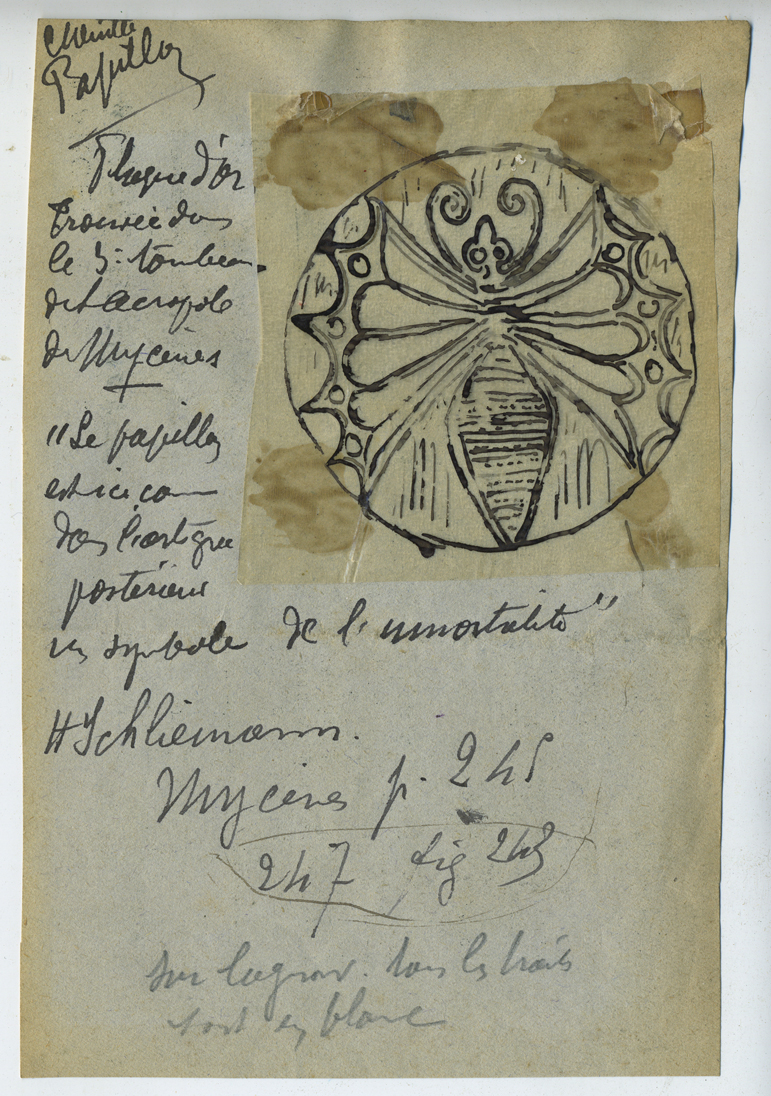 Chenille
Papillon
Plaque d'or
trouvée dans
le 3e tombeau
de l'acropole
de Mycènes
"Le papillon
est ici comme
dans l'art grec
postérieur
un symbole de l'immortalité"
H Schliemann.
Mycènes p. 245
247 fig 243
sur la grav. tous les traits
sont en blanc